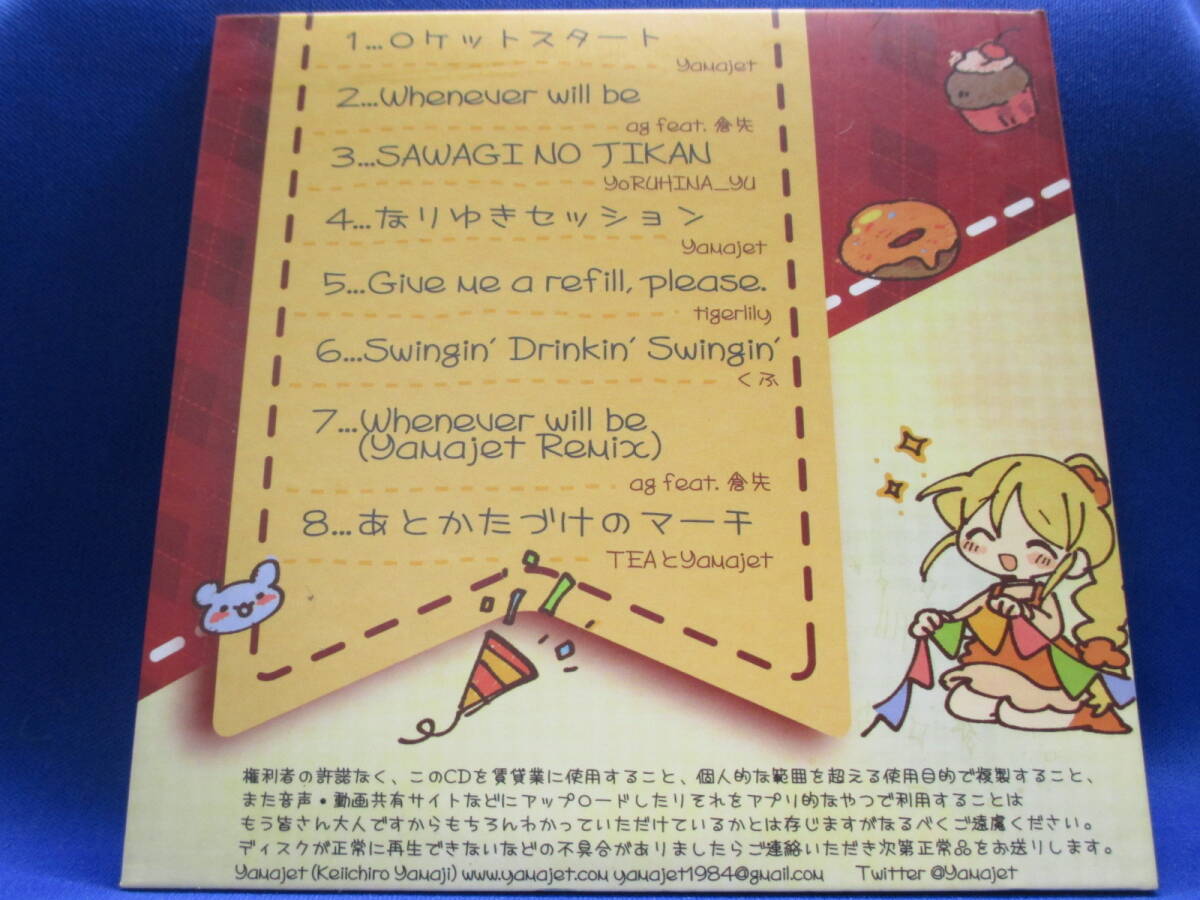 1...ロケットスタート
Yamajet
2...Whenever will be
ag feat. 倉先
3...SAWAGI NO JIKAN
YoRUHINA_YU
4...なりゆきセッション
Yamajet
5...Give me a refill, please.
tigerlily
6...Swingin' Drinkin' Swingin'
くふ
7...Whenever will be
(Yamajet Remix)
ag feat. 倉先
8...あとかたづけのマーチ
TEAとYamajet
権利者の許諾なく、このCDを賃貸業に使用すること、個人的な範囲を超える使用目的で複製すること、
また音声・動画共有サイトなどにアップロードしたりそれをアプリ的なやつで利用することは
もう皆さん大人ですからもちろんわかっていただけているかとは存じますがなるべくご遠慮ください。
ディスクが正常に再生できないなどの不具合がありましたらご連絡いただき次第正常品をお送りします。
Yamajet (Keiichiro Yamaji) www.yamajet.com yamajet1984@gmail.com Twitter @Yamajet